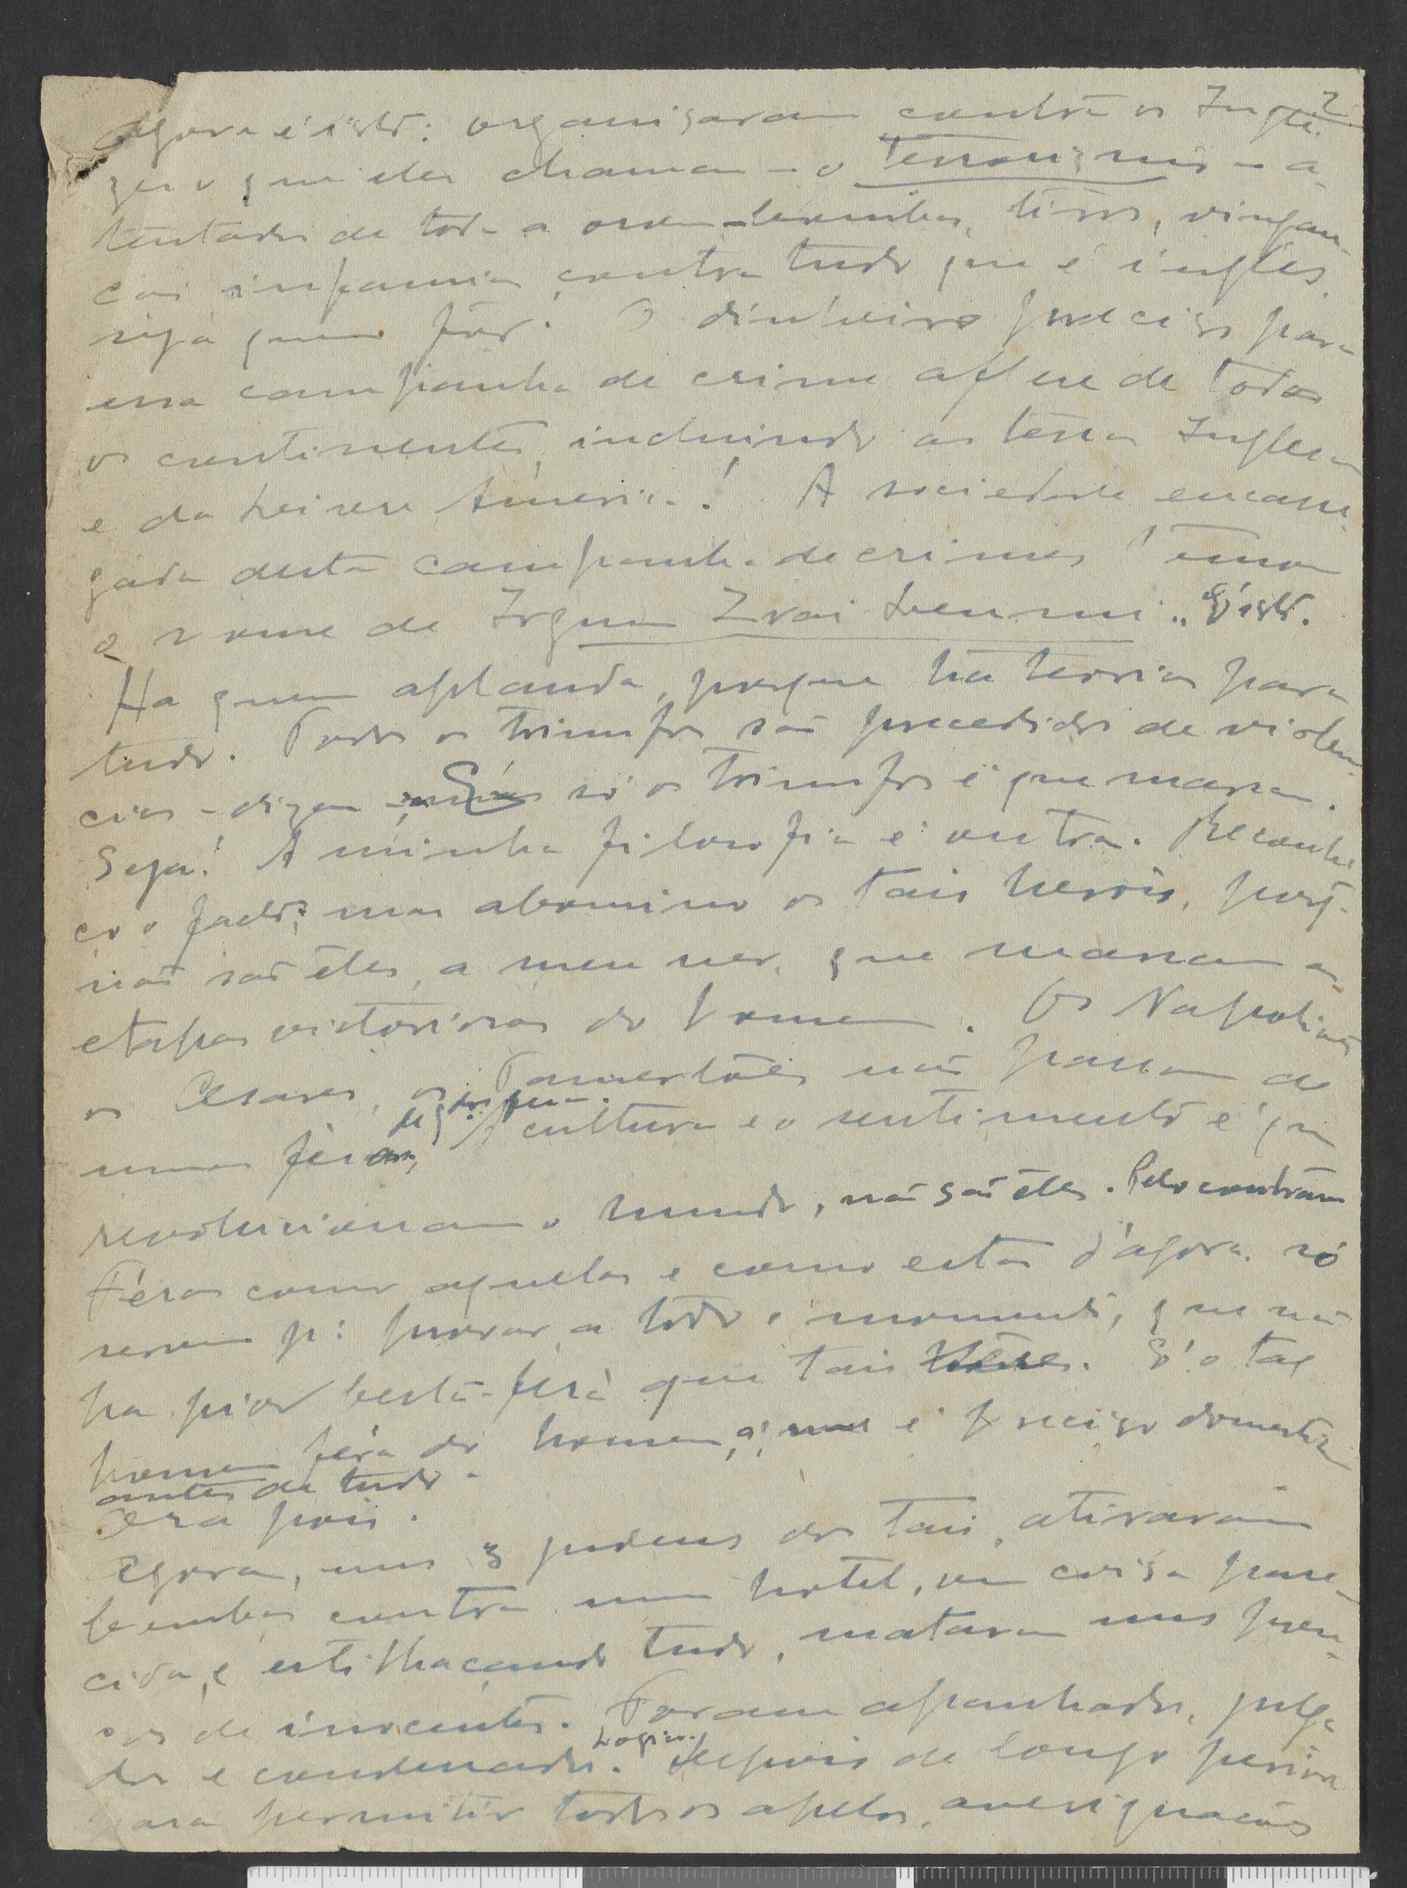 2
Agora é isto: organisaram contra os Ingle-
zes o que eles chamam - o terrorismo - a-
tentados de toda a ordem - bombas, tiros, vingan-
ças infamia contra tudo que é inglês,
seja quem fôr. O dinheiro preciso para
essa campanha de crime aflue de todos
os continentes, incluindo as terras Inglesas
e da America! A sociedade encarre-
gada desta campanha de crimes tomou
o nome de Irgun Zvai Leummi.. É isto.
Ha quem aplauda, porque ha teorias para
tudo. Todos os triunfos são precedidos de violen-
cias - dizem só os triunfos é que marcam.
Seja! A minha filosofia é outra. Reconhe
ço o facto, mas abomino os tais herois, porq.
não são êles, a meu ver, que marcam as
etapas victoriosas do homem. Os Napoliões
os Cesares, os Tamerlões não passam de
umas féras, A cultura e o sentimento é que
revolucionam o mundo, não são êles. Pelo contrario
Féras como aquelas e como estas d'agora só
servem p: provar a todo o momento, que não
ha pior besta-fera que tais. É o tal
homem féra do homem, q; é preciso domesticar
antes de tudo.
Ora pois.
Agora, uns 3 judeus dos tais, atiraram
bombas contra um hotel, ou coisa pare-
cida, e estilhaçando tudo, mataram uns poucos
de inocentes. Foram apanhados, julga
dos e condenados. Logico. Depois de longo periodo
para permitir todos os apelos, averiguações